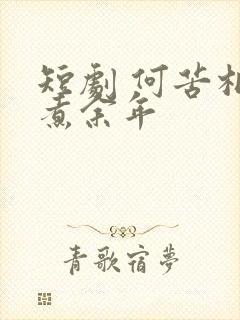 短劇 何苦相
煮余年
青歌宿夢